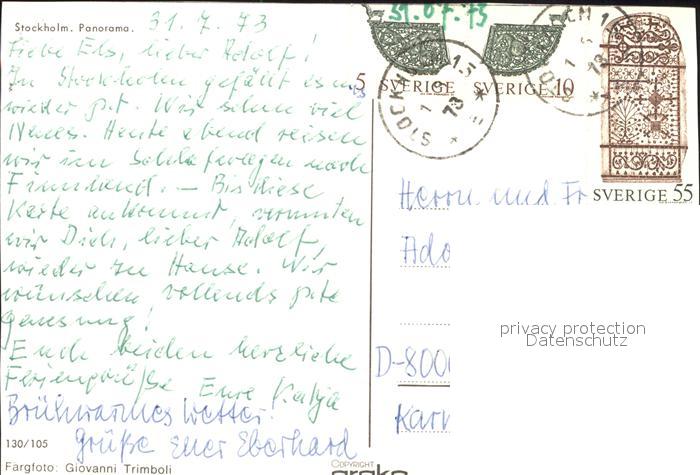 Stockholm. Panorama.
31.7.73
Liebe Els, lieber Adolf!
In Stockholm gefällt es uns
wieder gut. Wir sehen viel
Neues. Heute abend reisen
wir im Schlafwagen nach
Finnland. – Bis diese
Karte ankommt, vermuten
wir Dich, lieber Adolf,
wieder zu Hause. Wir
wünschen vollends gute
Genesung!
Euch beiden herzliche
Feriengrüße Eure Katja
Brühwarmes Wetter!
Grüße Euer Eberhard
130/105
Färgfoto: Giovanni Trimboli
31.07.73
5 SVERIGE SVERIGE 10
SVERIGE 55
STOCKHOLM 15
1 8 73
Herrn und Fr
Ado
privacy protection
Datenschutz
D-800
Karr
COPYRIGHT